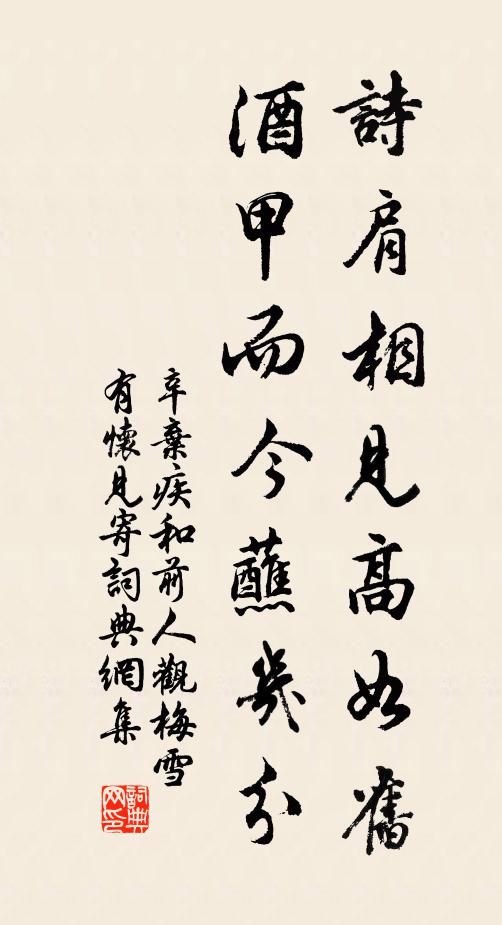 詩肩相見高如舊
酒甲而今蘸幾分
辛棄疾和前人觀梅雪
有懷見寄詞典網集
詞典網印